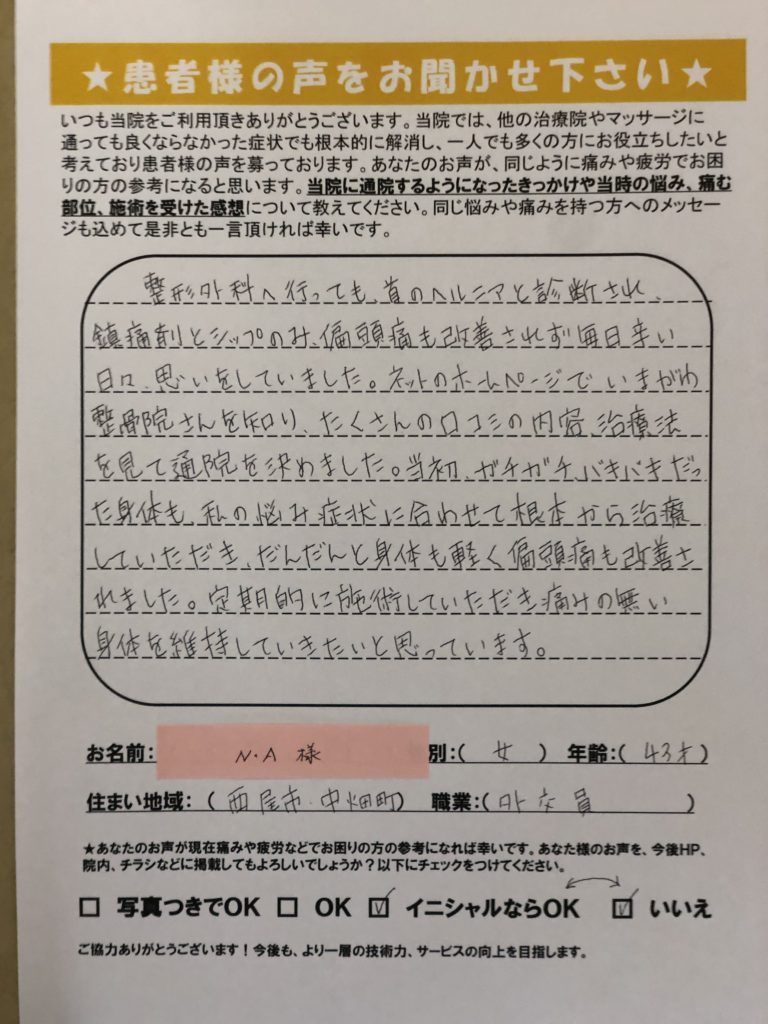 ★患者様の声をお聞かせ下さい★
いつも当院をご利用頂きありがとうございます。当院では、他の治療院やマッサージに
通っても良くならなかった症状でも根本的に解消し、一人でも多くの方にお役立ちしたいと
考えており患者様の声を募っております。あなたのお声が、同じように痛みや疲労でお困
りの方の参考になると思います。当院に通院するようになったきっかけや当時の悩み、痛む
部位、施術を受けた感想について教えてください。同じ悩みや痛みを持つ方へのメッセー
ジも込めて是非とも一言頂ければ幸いです。
整形外科へ行っても、首のヘルニアと診断され、
鎮痛剤とシップのみ、偏頭痛も改善されず毎日辛い
日々、思いをしていました。ネットのホームページでいまがわ
整骨院さんを知り、たくさんの口コミの内容、治療法
を見て通院を決めました。当初、ガチガチ、バキバキだっ
た身体も、私の悩み、症状に合わせて根本から治療
していただき、だんだんと身体も軽く偏頭痛も改善さ
れました。定期的に施術していただき痛みの無い
身体を維持していきたいと思っています。
お名前: N・A 様 別:( 女 ) 年齢:( 43才 )
住まい地域: ( 西尾市・中畑町) 職業:( 外交員 )
★あなたのお声が現在痛みや疲労などでお困りの方の参考になれば幸いです。あなた様のお声を、今後HP、
院内、チラシなどに掲載してもよろしいでしょうか?以下にチェックをつけてください。
□ 写真つきでOK □ OK ☑ イニシャルならOK ☑ いいえ
ご協力ありがとうございます!今後も、より一層の技術力、サービスの向上を目指します。